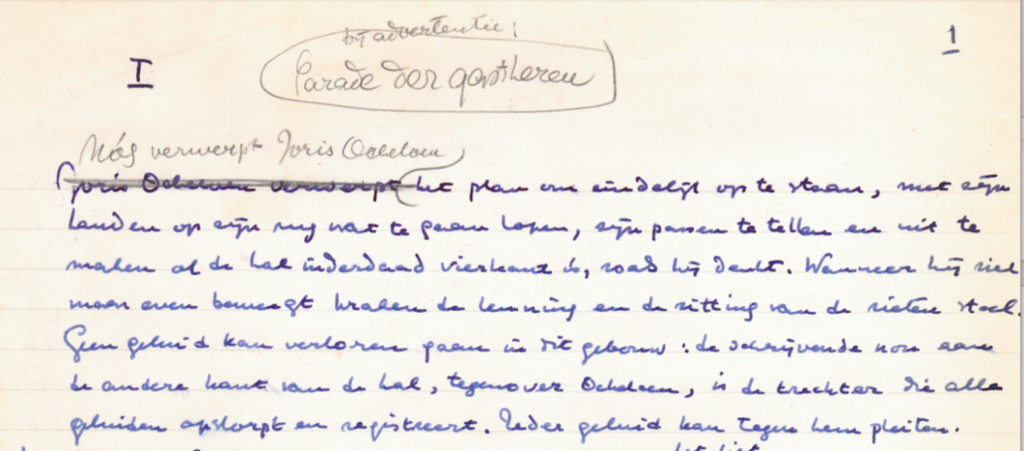 bij advertentie:
1
I
Parade der gastheren
Nóg verwerpt Joris Ockeloen
Joris Ockeloen verwerpt het plan om eindelijk op te staan, met zijn
handen op zijn rug wat te gaan lopen, zijn passen te tellen en uit te
maken of de hal inderdaad vierkant is, zoals hij denkt. Wanneer hij zich
maar even beweegt kraken de leuning en de zitting van de rieten stoel.
Geen geluid kan verloren gaan in dit gebouw: de schrijvende non aan
de andere kant van de hal, tegenover Ockeloen, is de trechter die alle
geluiden opslorpt en registreert. Ieder geluid kan tegen hem pleiten.